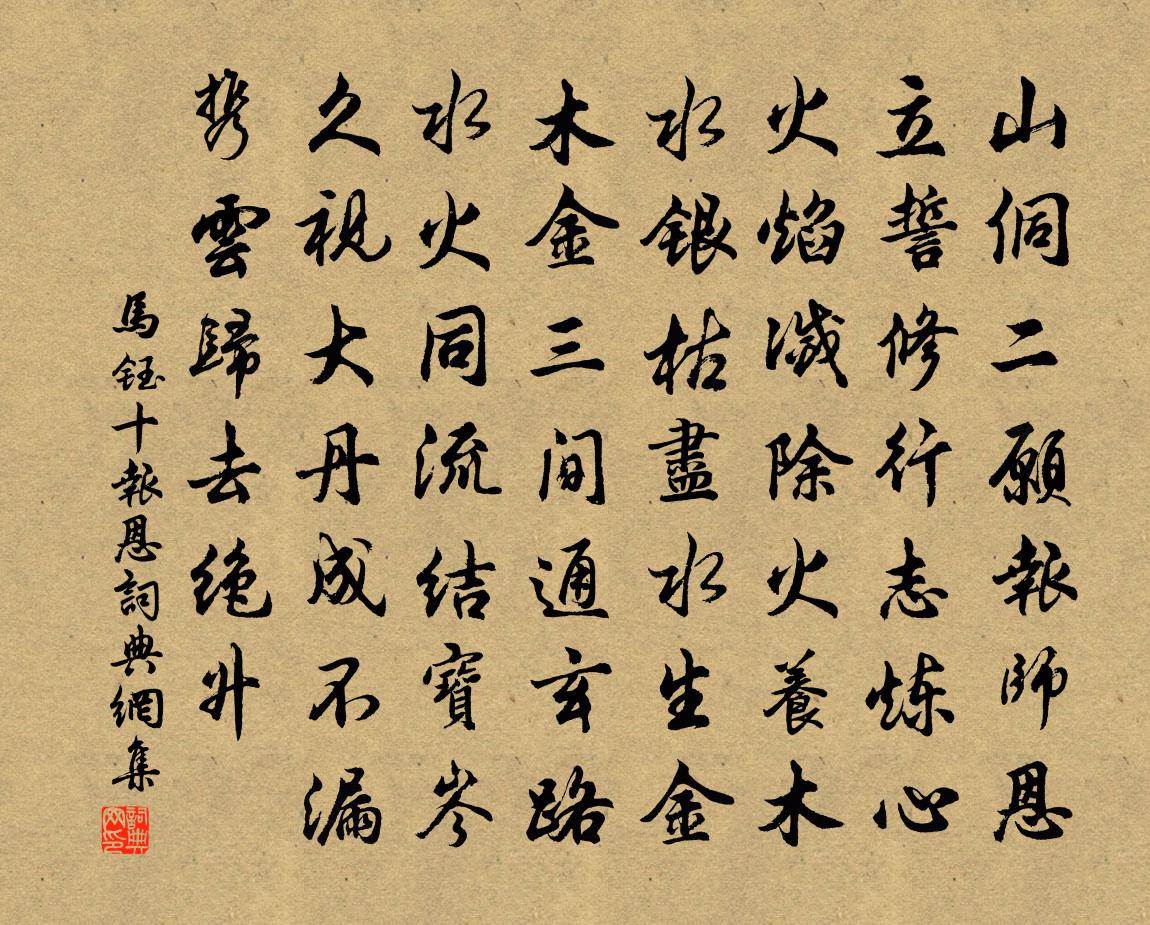 山侗二願報師恩
立誓修行志炼心
火焰滅除火養木
水銀枯盡水生金
木金三间通玄路
水火同流结寶岑
久視大丹成不漏
携雲歸去绝升
馬鈺十報恩詞典網集
詞典网印